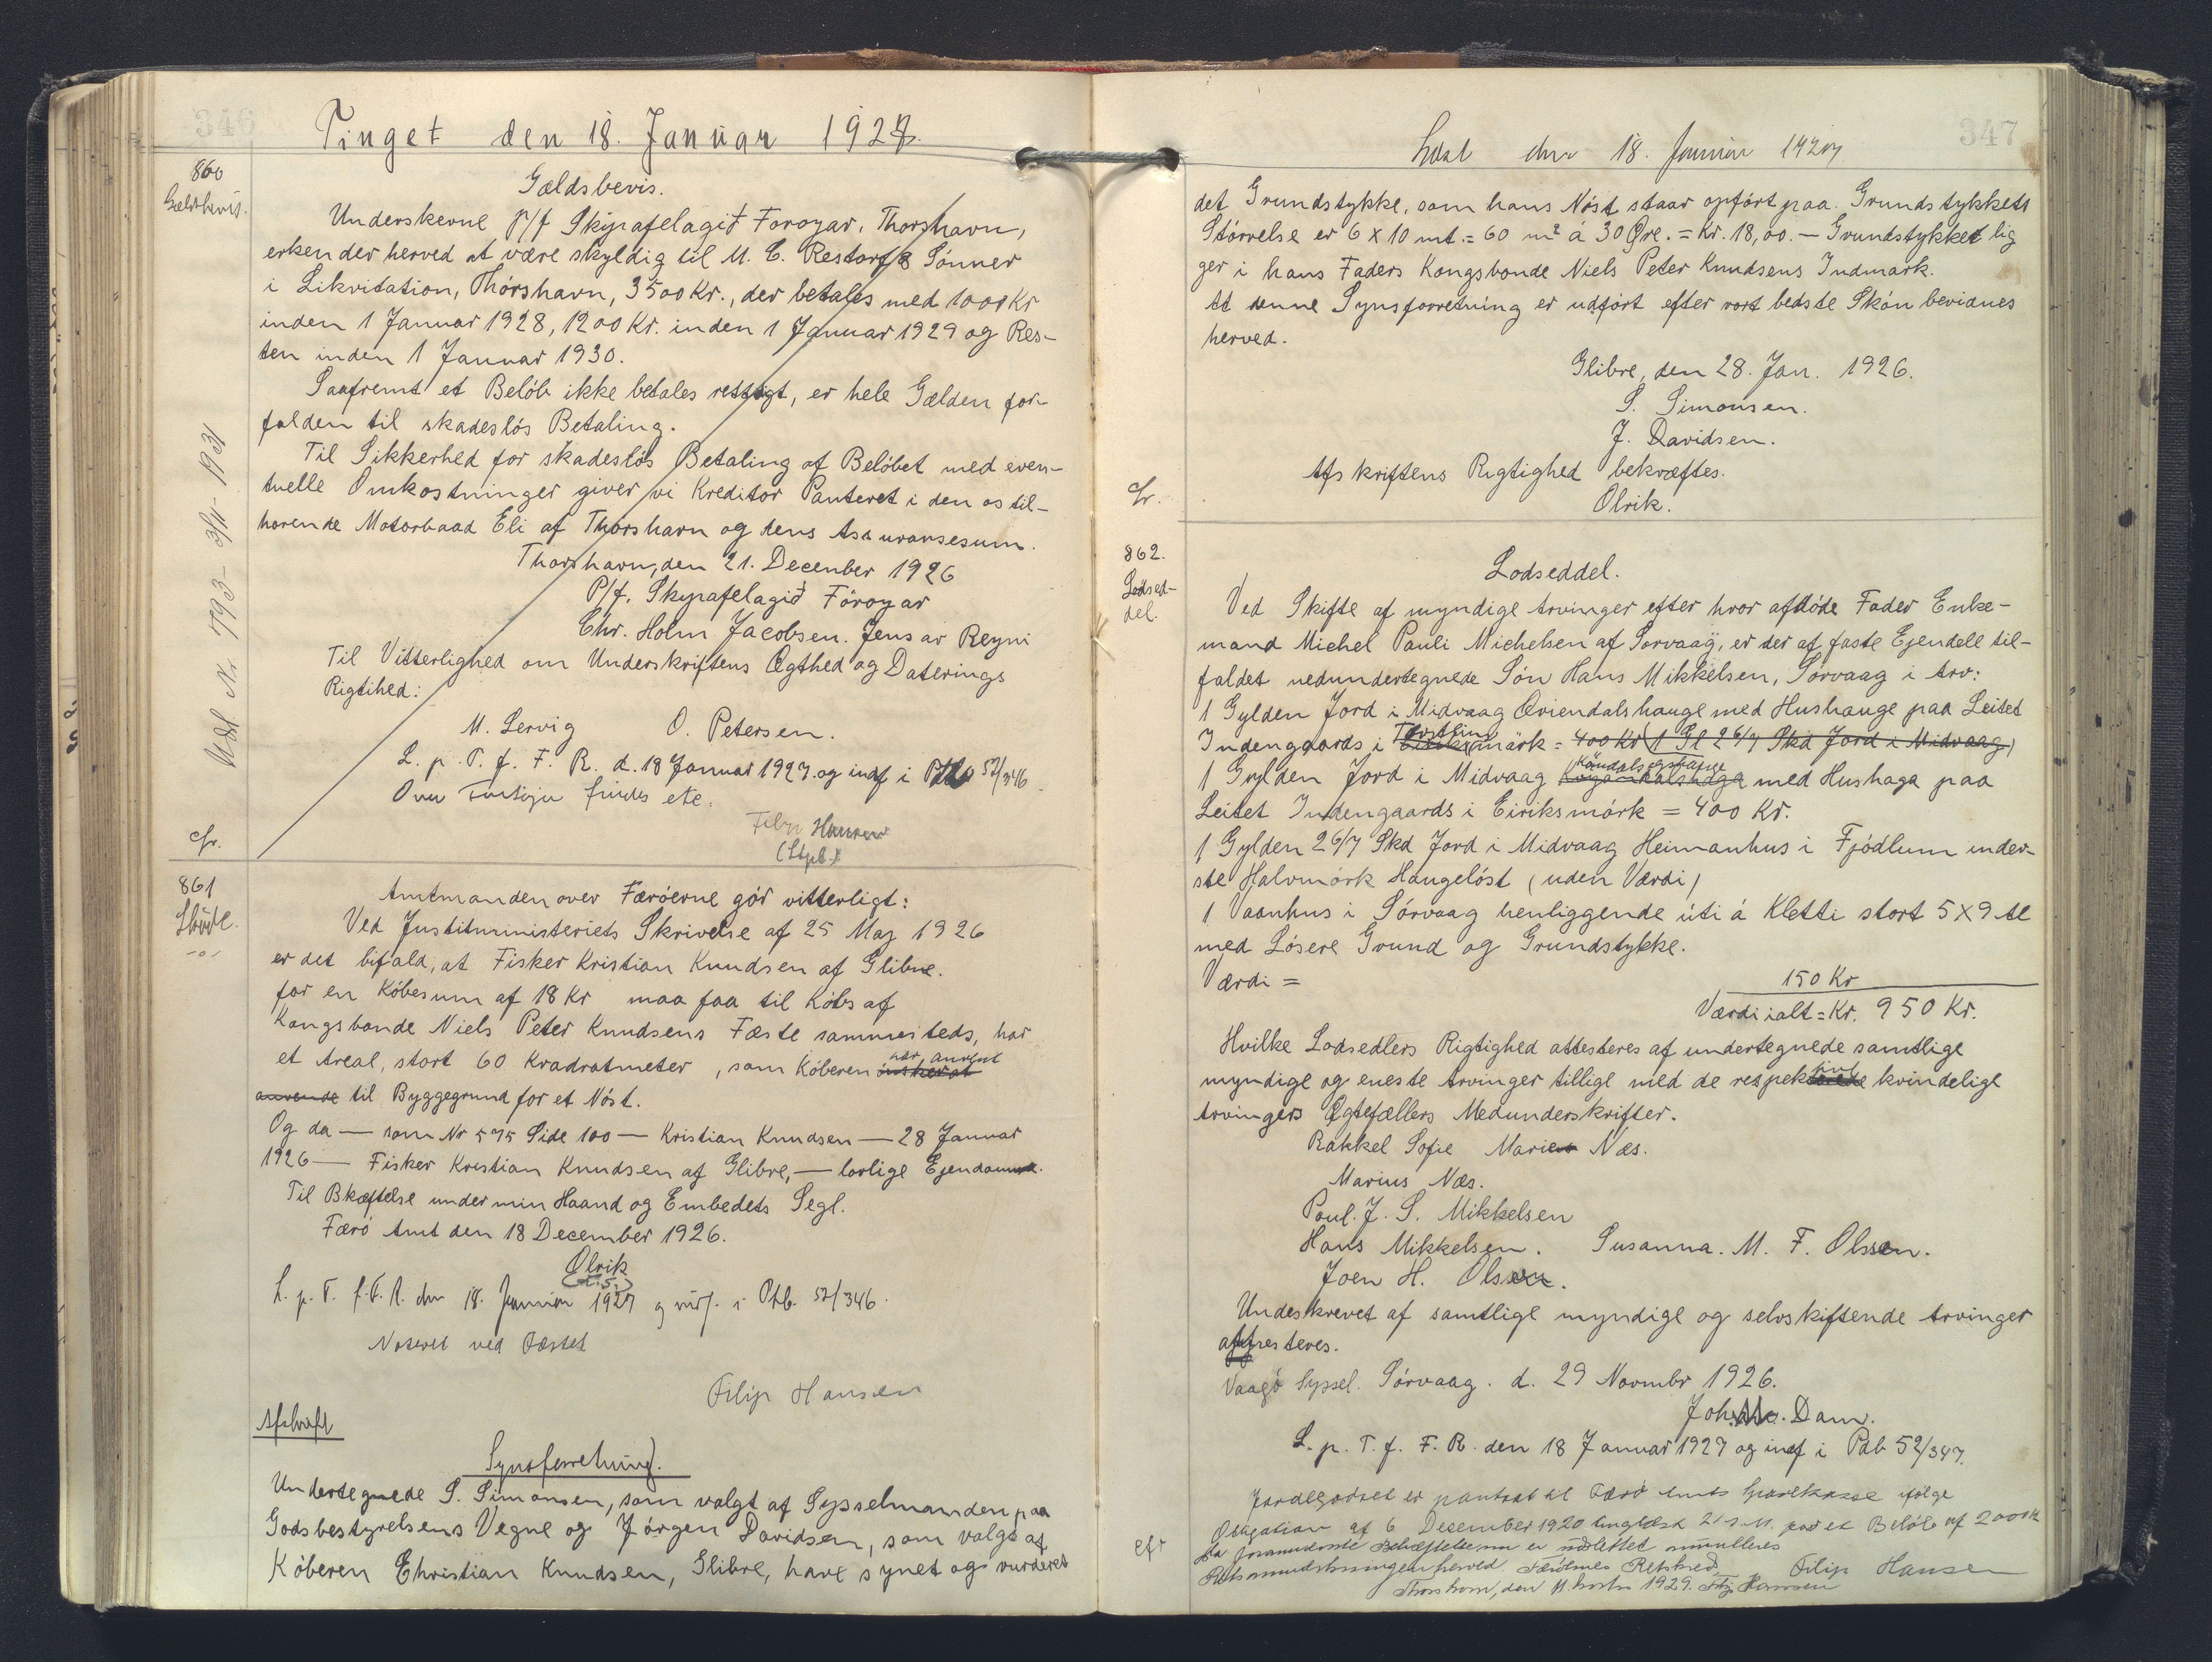 346
Tinget den 18. Januar 1927.
860
Gældsbevis.
Gældsbevis.
Underskevne P/f Skipafelagið Foroyar, Thorshavn,
erkender herved at være skyldig til M. C. Restorfs Sönner
i Likvidation, Thórshavn, 3500 Kr., der betales med 1000 Kr
inden 1 Januar 1928, 1200 Kr. inden 1 Januar 1929 og Res-
ten inden 1 Januar 1930.
Saafremt et Belöb ikke betales rettigt, er hele Gælden for-
falden til skadeslós Betaling.
Til Sikkerhed for skadeslós Betaling af Belöbet med even-
tuelle Omkostninger giver vi Kreditor Panteret i den os til-
horende Motorbaad Eli af Thorshavn og dens Assuransesum.
Thorshavn, den 21. December 1926
P/f. Skipafelagið Föroyar
Chr. Holm Jacobsen. Jens av Reyni
Til Vitterlighed om Underskriftens Ægthed og Daterings
Rigtihed:
M. Lervig O. Petersen.
L. p. T. f. F. R. d. 18 Januar 1927 og indf i Ptb 52/346.
Filip Hansen
(Stpl.)
Udsl Nr. 793 - 1931
cfr.
861
Sköde.
Amtmanden over Færóerne gór vitterligt:
Ved Justitsministeriets Skrivelse af 25 Maj 1926
er det bifald, at Fisker Kristian Knudsen af Glibre.
for en Köbesum af 18 Kr maa faa til Köbs af
Kongsbonde Niels Peter Knudsens Fæste sammesteds, har
et Areal, stort 60 Kvadratmeter, som Köberen har anvent
önsker at
anvende til Byggegrund for et Nóst.
Og da — som Nr 575 Side 100 — Kristian Knudsen — 28 Januar
1926 — Fisker Kristian Knudsen af Glibre, — lovlige Ejendomme.
Til Bkæftelse under min Haand og Embedets Segl.
Færö Amt den 18 December 1926.
Olrik
(L. S.)
L. p. T. f. F. R. den 18. Januar 1927 og indf. i Ptb. 52/346.
Noteret ved Fæstet
Filip Hansen
Afskrift
Synsforretning.
Undertegnede S. Simonsen, som valgt af Sysselmanden paa
Godsbestyrelsens Vegne og Jörgen Davidsen, som valgt af
Köberen Christian Knudsen, Glibre, have synet og vurderet
347
Læst den 18. Januar 1927
det Grundstykke, som hans Nöst staar opfört paa. Grundstykkets
Störrelse er 6 x 10 mt. = 60 m² á 30 Øre. = Kr. 18,00. — Grundstykket lig
ger i hans Faders Kongsbonde Niels Peter Knudsens Indmark.
At denne Synsforretning er udfört efter vort bedste Skön bevidnes
herved.
Glibre, den 28. Jan. 1926.
S. Simonsen.
J. Davidsen.
Afskriftens Rigtighed bekræftes.
Olrik.
cfr.
862.
Lodsed-
del.
Lodseddel.
Ved Skifte af myndige Arvinger efter hvor afdöde Fader Enke-
mand Michel Pauli Michelsen af Sorvaag, er der af faste Ejendele til-
faldet nedundertegnede Sön Hans Mikkelsen, Sörvaag i Arv:
1 Gylden Jord i Midvaag Qviendalshauge med Hushauge paa Leitet
Indengaards i mörk = 400 Kr (1 Gl 2 6/7 Skd Jord i Midvaag)
1 Gylden Jord i Midvaag med Hushaga paa
Leitet Indengaards i Eiriksmörk = 400 Kr.
1 Gylden 2 6/7 Skd Jord i Midvaag Heimanhus i Fjödlum inder-
ste Halvmörk Haugelöst (uden Værdi)
1 Vaanhus i Sórvaag henliggende úti á Kletti stort 5 x 9 Al
med Lósere Grund og Grundstykke.
Værdi = 150 Kr
Værdi ialt = Kr. 950 Kr.
Hvilke Lodsedlers Rigtighed attesteres af undertegnede samtlige
myndige og eneste Arvinger tillige med de respektive kvindelige
Arvingers Ægtefællers Medunderskrifter.
Rakkel Sofie Marie Næs.
Marius Næs.
Poul. J. S. Mikkelsen
Hans Mikkelsen. Susanna. M. F. Olsen.
Joen H. Olsen.
Undeskrevet af samtlige myndige og selvskiftende Arvinger
attesteres.
Vaagö Syssel. Sórvaag. d. 29 Novmbr 1926.
Joh. Dam.
L. p. T. f. F. R. den 18 Januar 1927 og indf i Pab 52/347.
Jordegodset er pantsat til Færö Amts Sparekasse ifölge
Obligation af 6 Desember 1920 tinglæst 21 s. M. for et Belöb af 2000 Kr
Filip Hansen
Da foranmeldte er udslettet annulleres
Retsanmærkningen herved. Færöernes Retskred,
Thorshavn, den 11. 1929. Filip Hansen
cfr